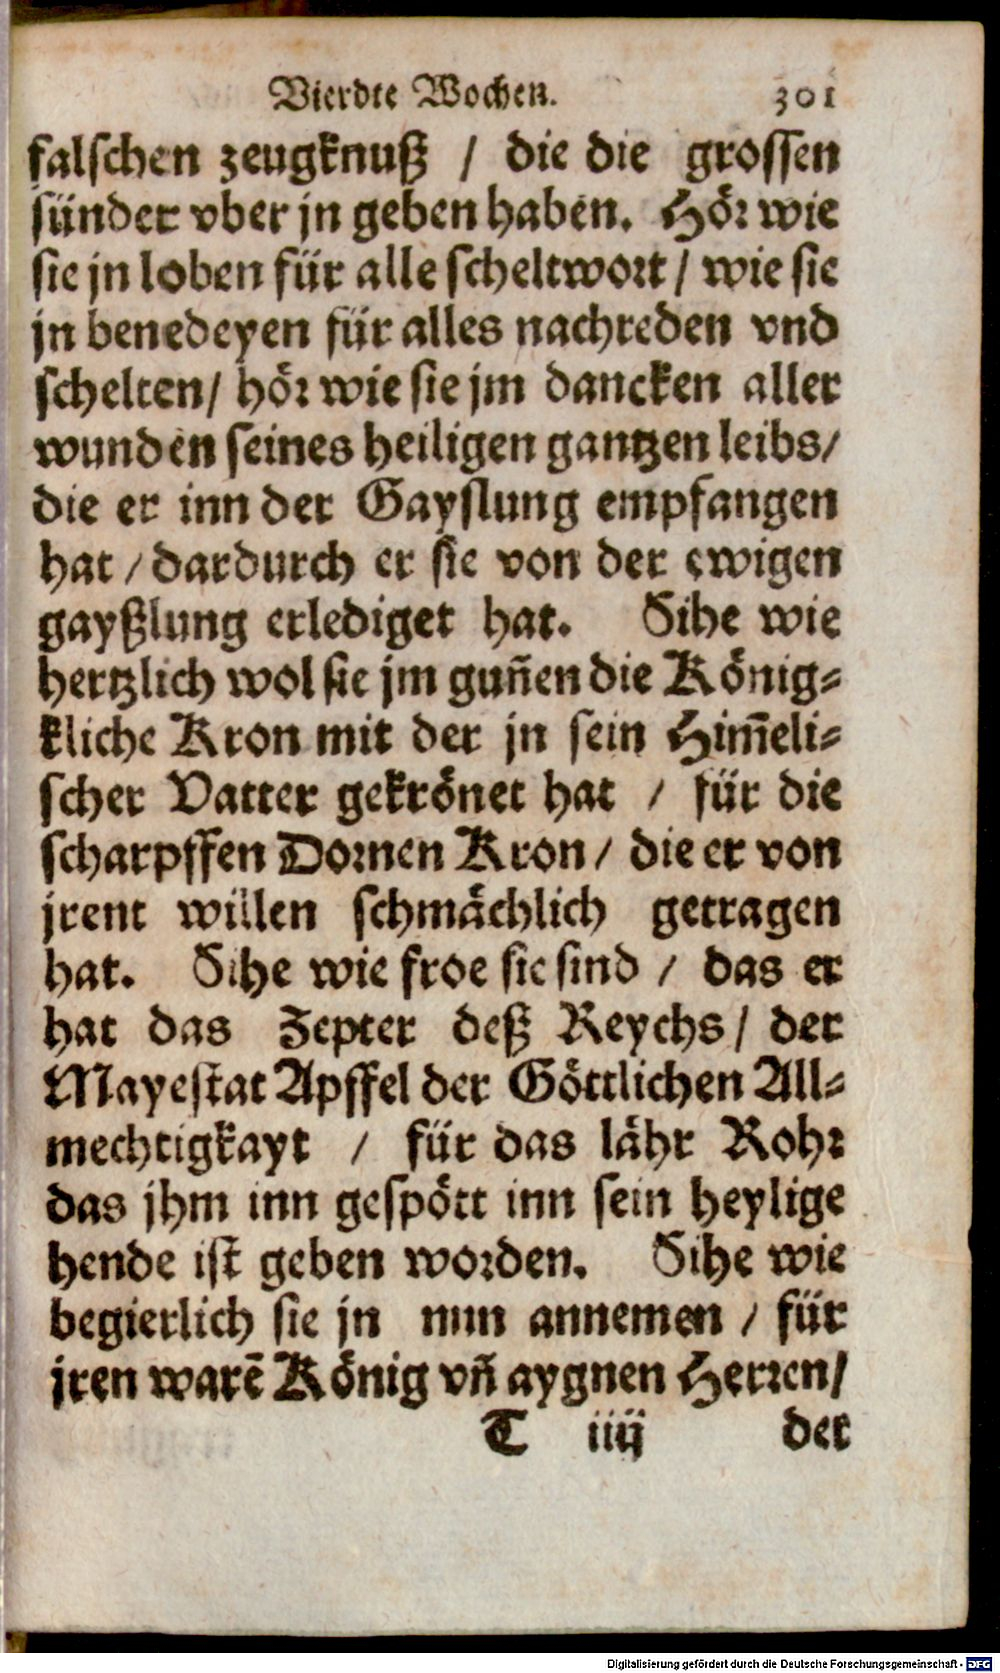 Vierdte Wochen. 301
falschen zeugknuß / die die grossen
sünder vber jn geben haben. Hör wie
sie jn loben für alle scheltwort / wie sie
jn benedeyen für alles nachreden vnd
schelten / hör wie sie jm dancken aller
wunden seines heiligen gantzen leibs /
die er inn der Gayslung empfangen
hat / dardurch er sie von der ewigen
gayßlung erlediget hat. Sihe wie
hertzlich wol sie jm gun̄en die König⸗
kliche Kron mit der jn sein Him̄eli⸗
scher Vatter gekrönet hat / für die
scharpffen Dornen Kron / die er von
jrent willen schmächlich getragen
hat. Sihe wie froe sie sind / das er
hat das Zepter deß Reychs / der
Mayestat Apffel der Göttlichen All⸗
mechtigkayt / für das lähr Rohr
das jhm inn gespött inn sein heylige
hende ist geben worden. Sihe wie
begierlich sie jn nun annemen / für
jren warē König vn̄ aygnen Herren /
T iiij der
Digitalisierung gefördert durch die Deutsche Forschungsgemeinschaft - DFG